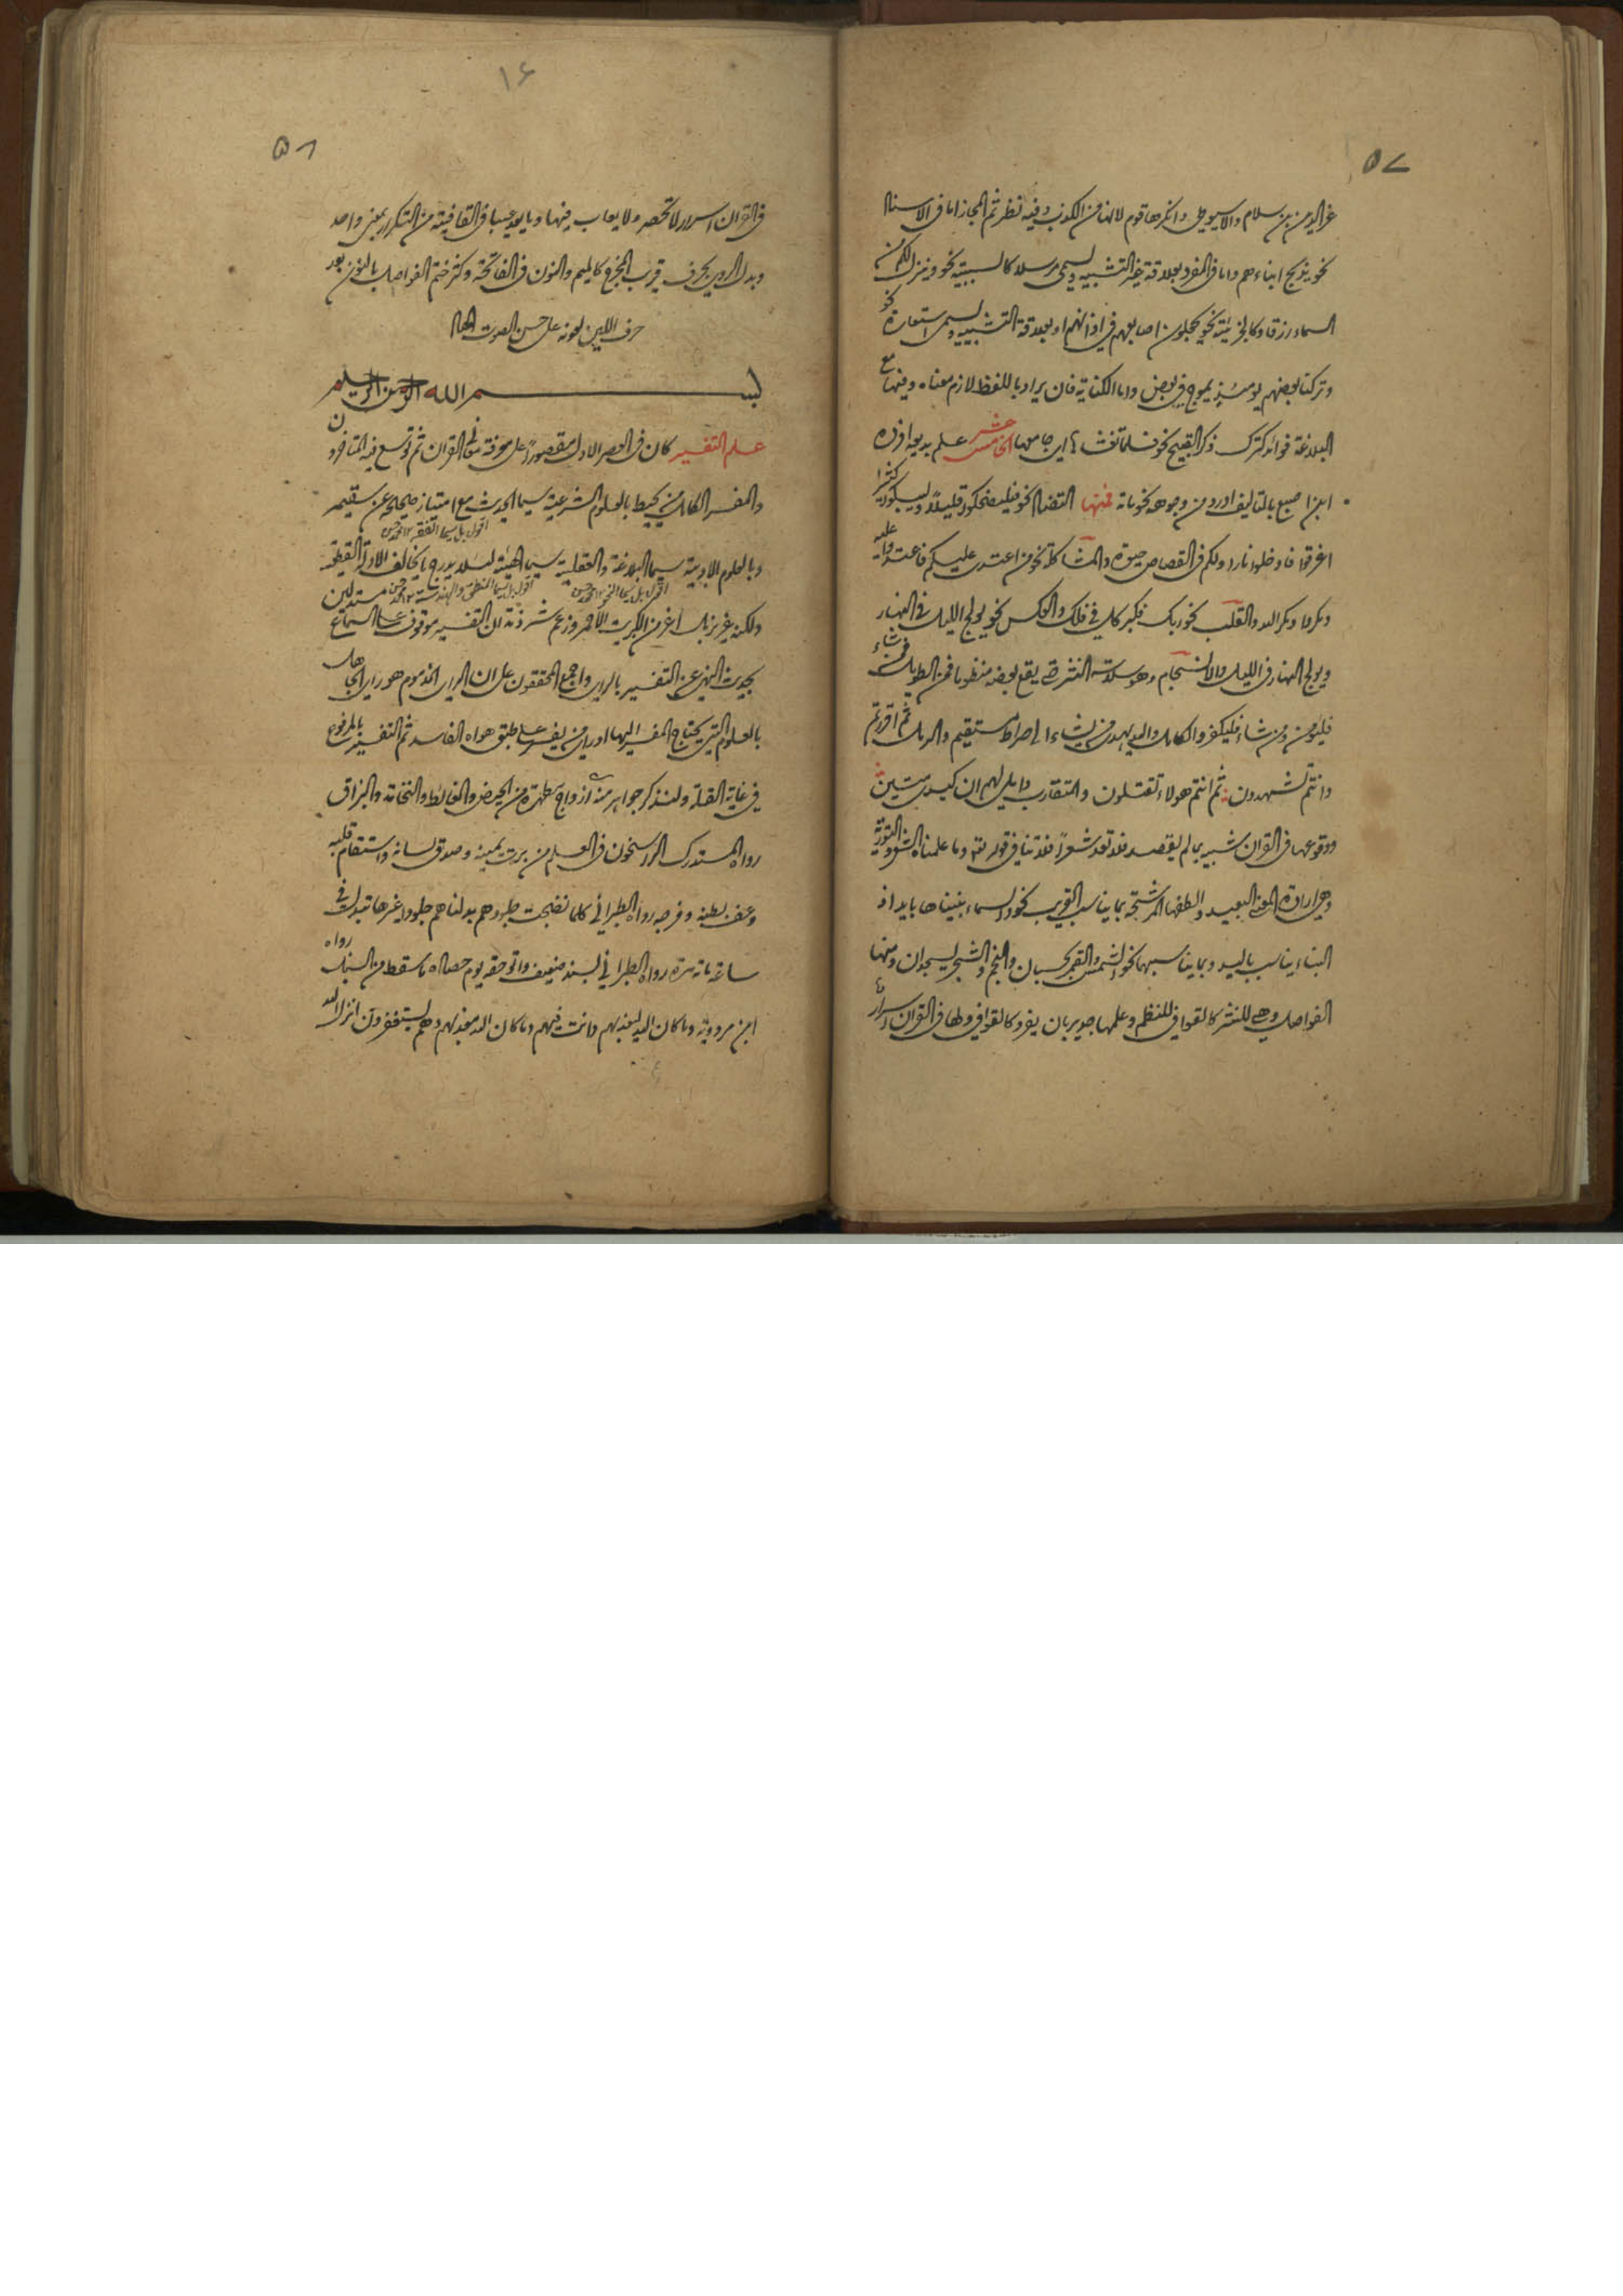 ٥٧
عز الدين بن سلام والاسيوطي وانكرها قوم لانها من الكذب وفيه نظر ثم المجاز اما في الاسناد
نحو يذبح ابناءهم واما في المفرد بعلاقة غير التشبيه ويسمى مرسلا كالسببية نحو وينزل لكم من
السماء رزقا وكالجزئية نحو يجعلون اصابعهم في اذانهم او بعلاقة التشبيه ويسمى استعارة نحو
وتركنا بعضهم يومئذ يموج في بعض واما الكناية فان يراد باللفظ لازم معناه وفيها مع
البلاغة فوائد كترك ذكر القبيح نحو فلما تغشاها اي جامعها الخامس عشر علم بديعه افرده
ابن ابي اصبع بالتاليف اورد من وجوهه نحو مائة فمنها التضاد نحو فليضحكوا قليلاً وليبكوا كثيرا
اغرقوا فادخلوا نارا ولكم في القصاص حيوة والمشاكلة نحو من اعتدى عليكم فاعتدوا عليه
ومكروا ومكر الله والقلب نحو ربك فكبر كل في فلك والعكس نحو يولج الليل في النهار
ويولج النهار في الليل والانسجام وهو سلاسة النثر حتى يقع بعضه منظوما فمن الطويل فمن شاء
فليؤمن ومن شاء فليكفر والكامل والله يهدي من يشاء الى صراط مستقيم والرمل ثم اقررتم
وانتم تشهدون ثم انتم هولاء تقتلون والمتقارب واملي لهم ان كيدي متين
ووقوعها في القران شبيه بما لم يقصد فلا تعد شعراً فلا تنافي قوله تعالى وما علمناه الشعر والتورية
وهي ارادة المعنى البعيد والطفها المرشحة بما يناسب القريب نحو والسماء بنيناها بايد اذ
البناء يناسب باليد وبما يناسبهما نحو الشمس والقمر بحسبان والنجم والشجر يسجدان ومنها
الفواصل وهي للنثر كالقوافي للنظم وعلمها جدير بان يفرد كالقوافي ولها في القران اسرار
١٤
٥٨
في القران اسرار لا تحصر ولا يعاب فيها وما يعد عيبا في القافية من التكرار بمعنى واحد
وبدل الروي بحرف قريب المخرج كالميم والنون في الفاتحة وكثر ختم الفواصل بالنون بعد
حرف اللين لعونه على حسن الصوت
بسم الله الرحمن الرحيم
علم التفسير كان في العصر الاول مقصوراً على معرفة القران ثم توسع فيه المتاخرون
والمفسر الكامل من يحيط بالعلوم الشرعية سيما الحديث مع امتياز صحيحه عن سقيمه
اقول بل سيما الفقه
وبالعلوم الادبية سيما البلاغة والعقلية سيما الهيئة لئلا يدرج ما يخالف الادلة القطعية
اقول بل سيما النحو
اقول بل سيما المنطق والهندسة
ولكنه عزيز بل اعز من الكبريت الاحمر وزعم شرذمة ان التفسير موقوف على السماع مستدلين
بحديث النهي عن التفسير بالراي واجمع المحققون على ان الراي المذموم هو راي الجاهل
بالعلوم التي يحتاج المفسر اليها او راي من يفسر على طبق هواه الفاسد ثم التفسير بالمرفوع
في غاية القلة ولنذكر جواهر منه ازواج مطهرة من الحيض والغائط والنخامة والبزاق
رواه المستدرك الراسخون في العلم من برت يمينه وصدق لسانه واستقام قلبه
وعف بطنه وفرجه رواه الطبراني كلما نضجت جلودهم بدلناهم جلودا غيرها تبدل في
ساعة مائة مرة رواه الطبراني بسند ضعيف واتوا حقه يوم حصاده ما سقط من السنبل رواه
ابن مردويه وما كان الله ليعذبهم وانت فيهم وما كان الله معذبهم وهم يستغفرون انزل الله